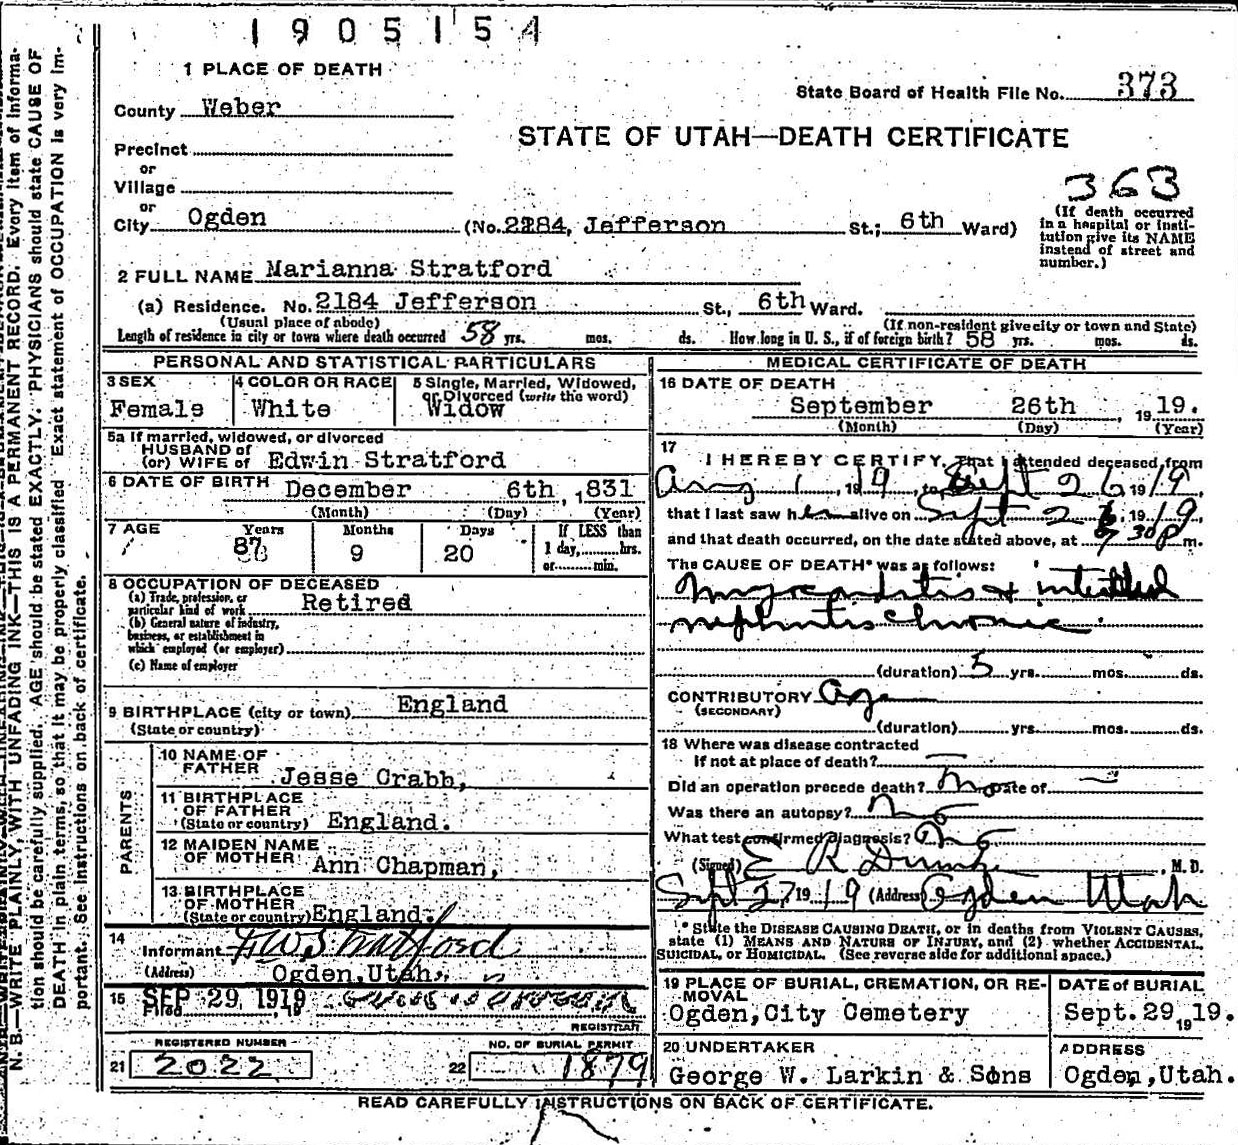 1905154
1 PLACE OF DEATH
State Board of Health File No. 373
County Weber
STATE OF UTAH—DEATH CERTIFICATE
Precinct
or
Village
363
or
City Ogden (No. 2184, Jefferson St.; 6th Ward)
(If death occurred
in a hospital or insti-
tution give its NAME
instead of street and
number.)
2 FULL NAME Marianna Stratford
(a) Residence. No. 2184 Jefferson St., 6th Ward.
(Usual place of abode) (If non-resident give city or town and State)
Length of residence in city or town where death occurred 58 yrs. mos. ds. How long in U. S., if of foreign birth? 58 yrs. mos. ds.
PERSONAL AND STATISTICAL PARTICULARS
3 SEX
Female
4 COLOR OR RACE
White
5 Single, Married, Widowed,
or Divorced (write the word)
Widow
5a If married, widowed, or divorced
HUSBAND of
(or) WIFE of Edwin Stratford
6 DATE OF BIRTH December 6th, 1831
(Month) (Day) (Year)
7 AGE Years Months Days If LESS than
87 9 20 1 day, hrs.
or min.
8 OCCUPATION OF DECEASED
(a) Trade, profession, or
particular kind of work Retired
(b) General nature of industry,
business, or establishment in
which employed (or employer)
(c) Name of employer
9 BIRTHPLACE (city or town) England
(State or country)
PARENTS
10 NAME OF
FATHER Jesse Crabb,
11 BIRTHPLACE
OF FATHER
(State or country) England.
12 MAIDEN NAME
OF MOTHER Ann Chapman,
13 BIRTHPLACE
OF MOTHER
(State or country) England.
14
Informant E W Stratford
(Address) Ogden, Utah.
15 SEP 29, 1919
Filed , 19
REGISTRAR
REGISTERED NUMBER
21 2022
NO. OF BURIAL PERMIT
22 1879
MEDICAL CERTIFICATE OF DEATH
16 DATE OF DEATH
September 26th, 1919.
(Month) (Day) (Year)
17
I HEREBY CERTIFY, That I attended deceased from
Aug 1, 1919, to Sept 26 1919
that I last saw her alive on Sept 26, 1919
and that death occurred, on the date stated above, at 30 p m.
The CAUSE OF DEATH* was as follows:
Myocarditis & interstitial
nephritis chronic
(duration) 5 yrs. mos. ds.
CONTRIBUTORY Age
(SECONDARY)
(duration) yrs. mos. ds.
18 Where was disease contracted
if not at place of death?
Did an operation precede death? no Date of
Was there an autopsy? no
What test confirmed diagnosis?
(Signed) E R Dumke, M. D.
Sept 27 1919 (Address) Ogden Utah
* State the DISEASE CAUSING DEATH, or in deaths from VIOLENT CAUSES,
state (1) MEANS AND NATURE OF INJURY, and (2) whether ACCIDENTAL,
SUICIDAL, or HOMICIDAL. (See reverse side for additional space.)
19 PLACE OF BURIAL, CREMATION, OR RE-
MOVAL
Ogden, City Cemetery
DATE of BURIAL
Sept. 29, 1919.
20 UNDERTAKER
George W. Larkin & Sons
ADDRESS
Ogden, Utah.
READ CAREFULLY INSTRUCTIONS ON BACK OF CERTIFICATE.
N. B.—WRITE PLAINLY, WITH UNFADING INK—THIS IS A PERMANENT RECORD. Every item of informa-
tion should be carefully supplied. AGE should be stated EXACTLY. PHYSICIANS should state CAUSE OF
DEATH in plain terms, so that it may be properly classified. Exact statement of OCCUPATION is very im-
portant. See instructions on back of certificate.